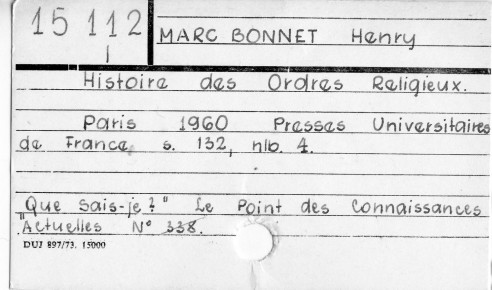 15 112
1
MARC BONNET Henry
Histoire des Ordres Religieux.
Paris 1960 Presses Universitaires
de France, s. 132, nlb. 4.
"Que sais-je?" Le Point des Connaissances
Actuelles N° 338.
DUJ 897/73. 15000